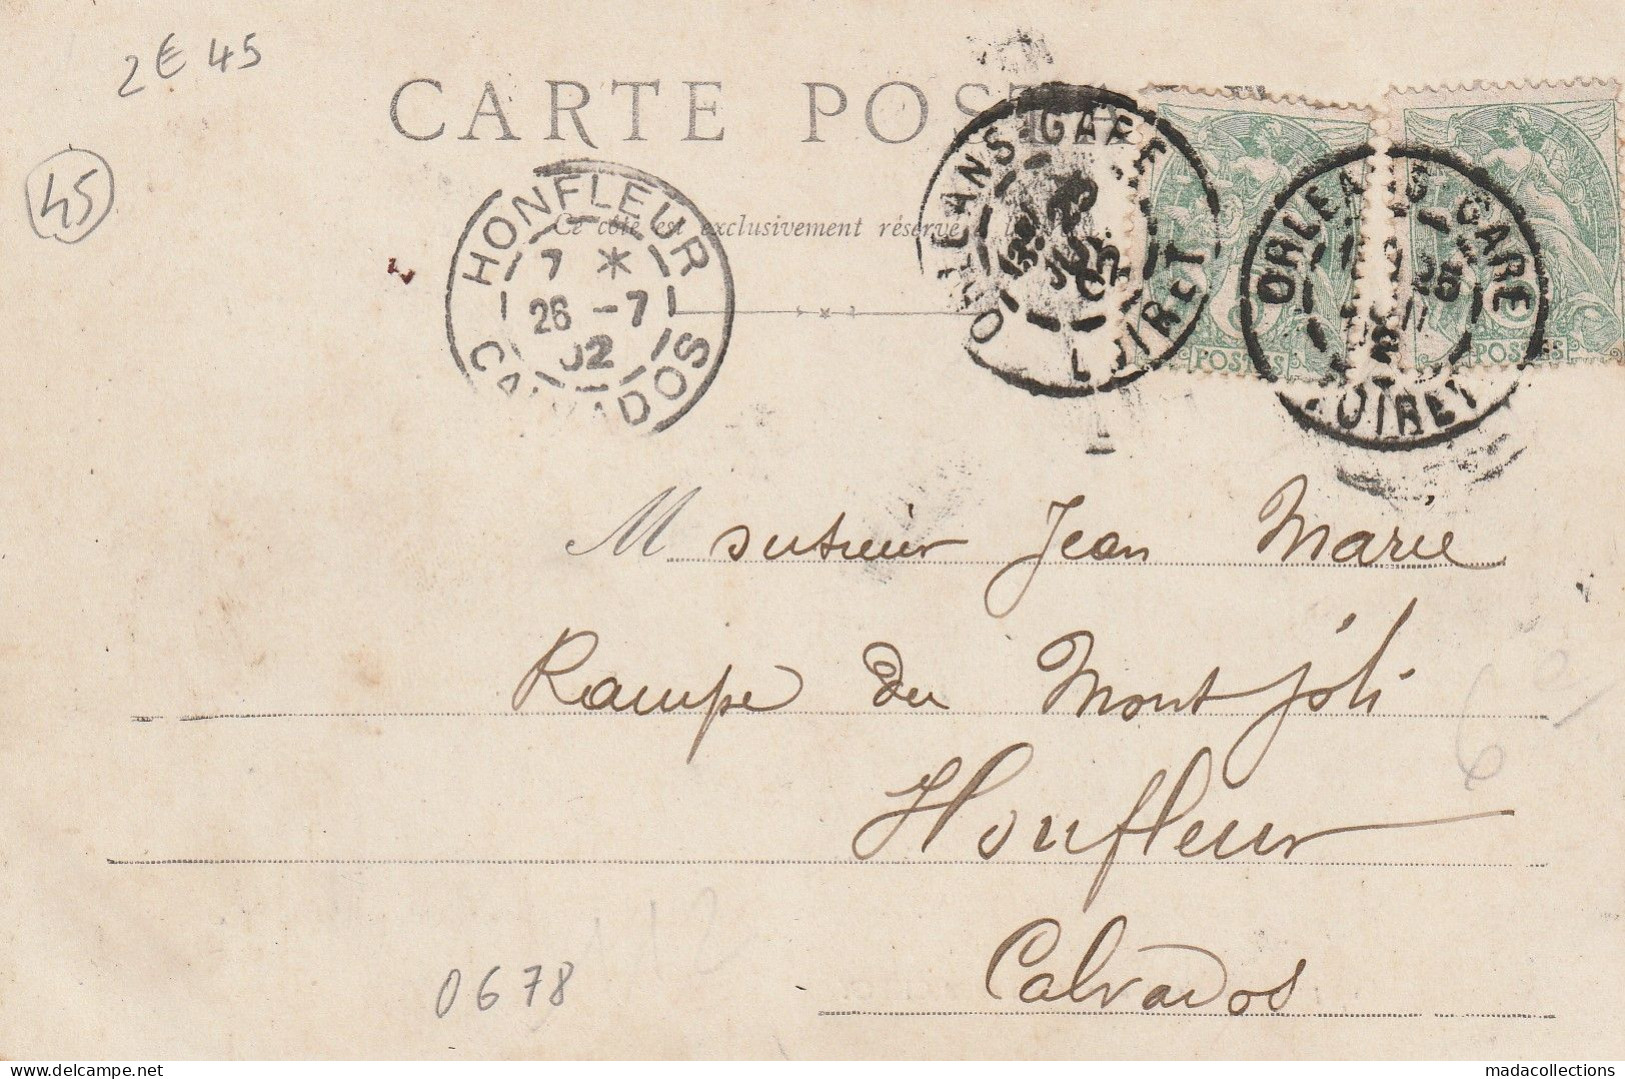 2E 45
45
CARTE POSTA
Ce côté est exclusivement réservé à l'
HONFLEUR
7 *
26 - 7
02
CALVADOS
ORLEANS GARE
LOIRET
ORLEANS GARE
25
LOIRET
POSTES
POSTES
M sutrieur Jean Marie
Rampe du Mont Joli
Honfleur
Calvados
0678
madacollections